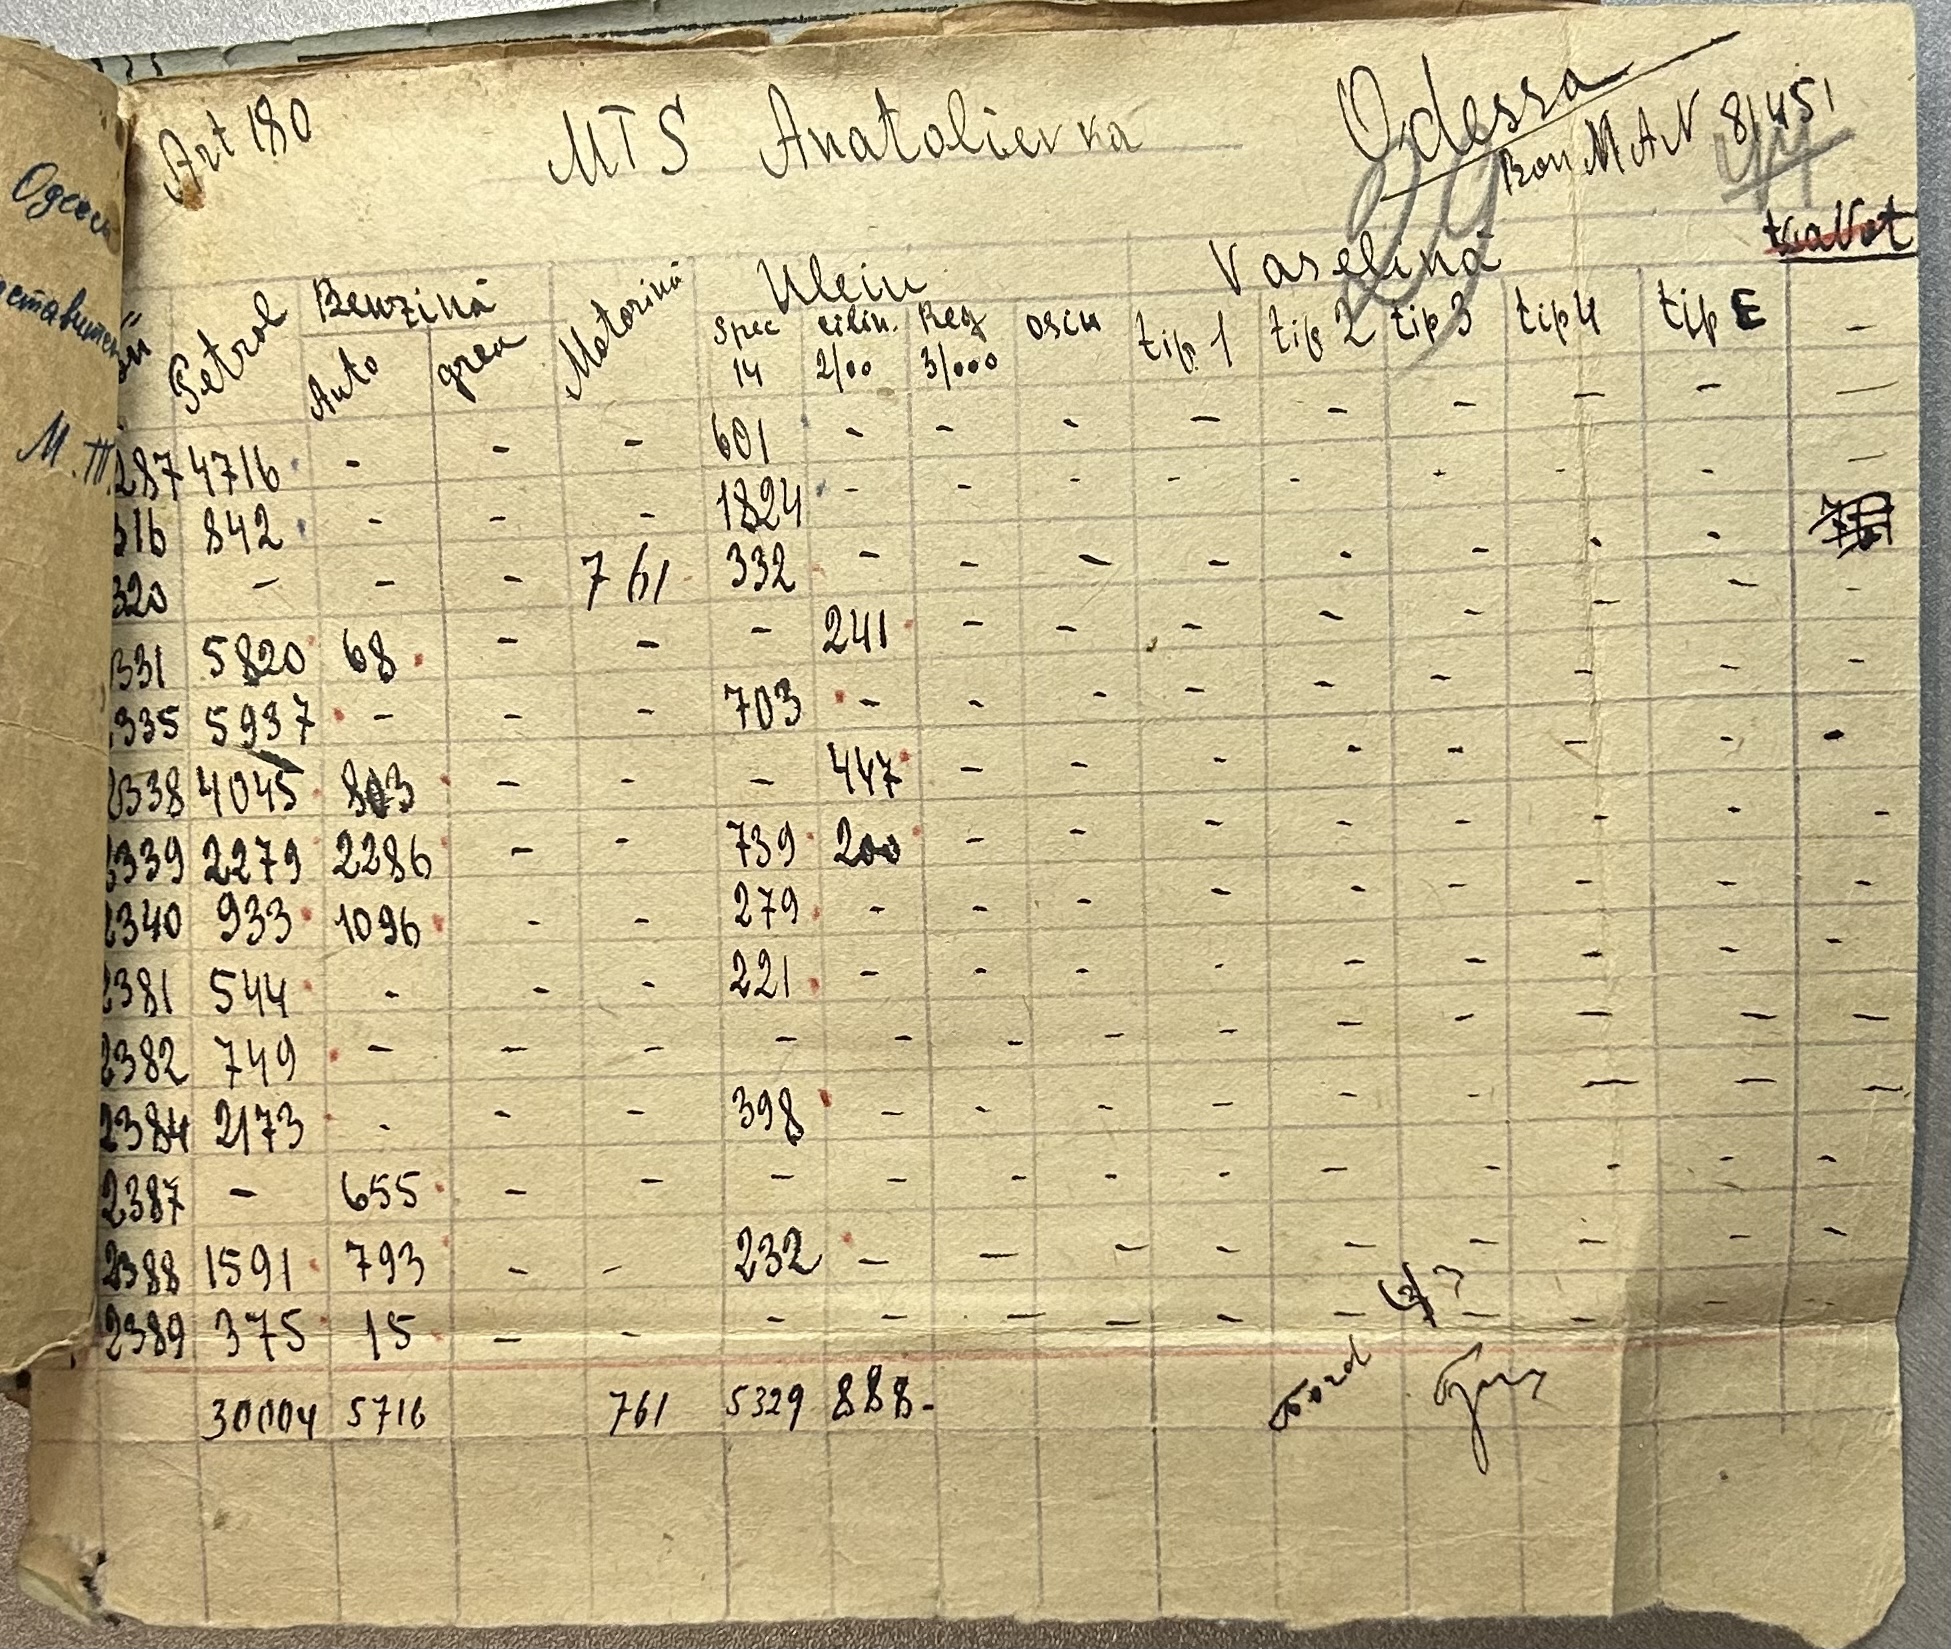 Art 180 MTS Anatolievka Odessa
Bon MAN 81451
29
Одесс
ставител
М.Т.
Petrol Benzină Motorină Uleiu Vaselină
Auto grea Spec 14 cilin. 2/00 Reg 3/000 osiu tip 1 tip 2 tip 3 tip 4 tip E -
287 4716 - - - 601 - - - - - - - - -
316 842 - - - 1824 - - - - - - - - -
320 - - - 761 332 - - - - - - - -
331 5820 68 - - - 241 - - - - - - - -
335 5937 - - - 703 - - - - - - - - -
2338 4045 803 - - - 447 - - - - - - - -
2339 2279 2286 - - 739 200 - - - - - - - -
2340 933 1096 - - 279 - - - - - - - - -
2381 544 - - - 221 - - - - - - - - -
2382 749 - - - - - - - - - - - - -
2384 2173 - - - 398 - - - - - - - - -
2387 - 655 - - - - - - - - - - - -
2388 1591 793 - - 232 - - - - - - - - -
2389 375 15 - - - - - - - - - - - -
30004 5716 761 5329 888-